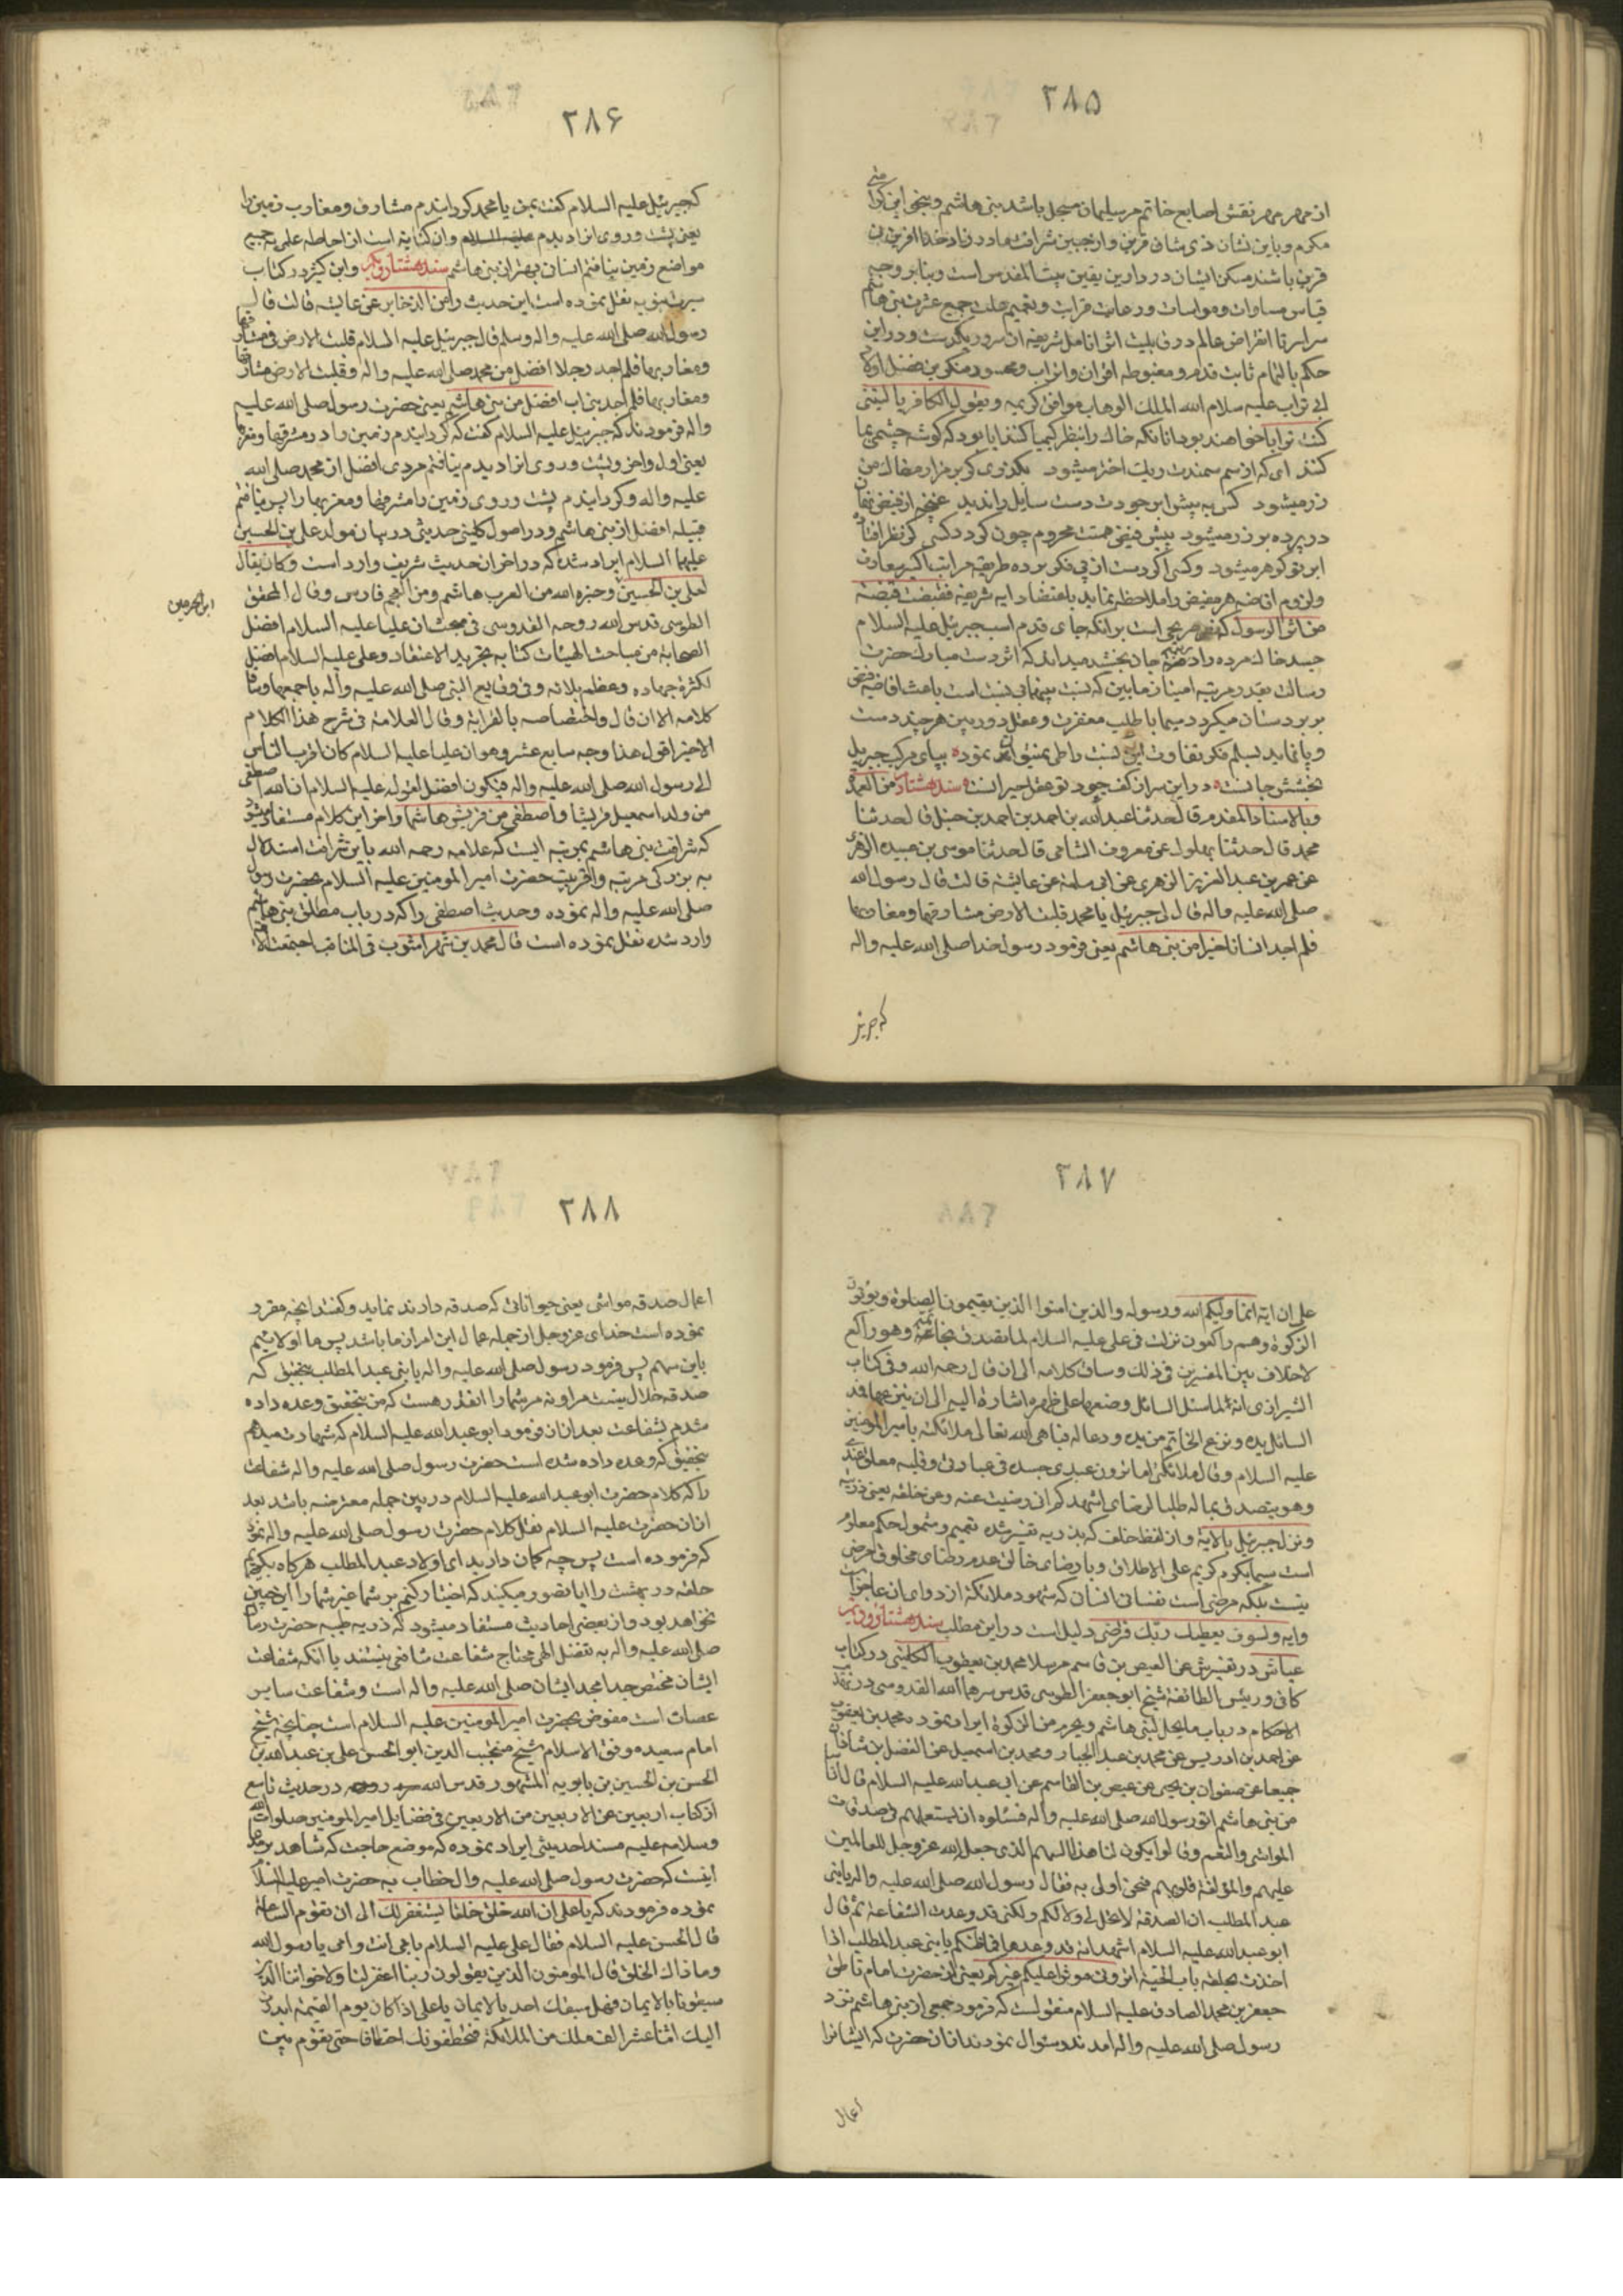 ۲۸۵
مکرم و باین نشان ذی شان قرین و از جبین شرافت مادر زاد خدا آفرین
قرین باشند مسکن ایشان در دارین یقین بیت المقدس است و بنابر وجه
قیاس مساوات و مواسات و رعایت قرابت و تعمیم علت جمیع عشرت بنی هاشم
حکم بالتمام ثابت قدم و مغبوطه اقران و اتراب و محسود منکرین فضل اولاد
ابی تراب علیه سلام الله الملک الوهاب موافق کریمه و یقول الکافر یا لیتنی
کنت ترابا خواهند بود آنانکه خاک را بنظر کیمیا کنند آیا بود که گوشه چشمی بما
کنند ای که از سم سمندت ریک اختر میشود بگذری گر بر مزار من خاک من
زر میشود کس به پیش ابر جودت دست سایل را ندید
در پرده بو زر میشود پیش فیض همتت محروم چون گردد کسی
ابر تو گوهر میشود
من اثر الرسول که
جسد خاک مرده را جان بخشد میداند که اثر دست مبارک حضرت
بخشش جانست در این سر آن کف جود تو عقل حیرانست سند هشتاد من العمدة
و بالاسناد المقدم قال حدثنا عبد الله بن احمد بن احمد بن حنبل قال حدثنا
محمد قال حدثنا بهلول عن معروف الشامی قال حدثنا موسی بن عبیده الزهری
عن عمر بن عبد العزیز الزهری عن ابی سلمة عن عایشة قالت قال رسول الله
صلی الله علیه و اله قال لی جبرئیل یا محمد قلبت الارض مشارقها و مغاربها
فلم اجد انسانا خیرا من بنی هاشم یعنی فرمود رسول خدا صلی الله علیه و اله
که جبرئیل
۲۸۶
که جبرئیل علیه السلام گفت بمن یا محمد گردانیدم مشارق و مغارب زمین را
یعنی پشت و روی انرا دیدم علیه السلام و ان کنایه است از احاطه علم به جمیع
مواضع زمین نیافتم انسان بهتر از بنی هاشم سند هشتاد و یکم و ابن کثیر در کتاب
سیرت نبویه نقل نموده است این حدیث را من الذخایر عن عایشه قالت قال
رسول الله صلی الله علیه و اله و سلم قال جبرئیل علیه السلام قلبت الارض فی مشارقها
و مغاربها فلم اجد رجلا افضل من محمد صلی الله علیه و اله و قلبت الارض مشارقها
و مغاربها فلم اجد بنی اب افضل من بنی هاشم یعنی حضرت رسول صلی الله علیه
و اله فرمودند که جبرئیل علیه السلام گفت که گردانیدم زمین را در مشرقها و مغربها
یعنی اول و اخر و پشت و روی انرا دیدم نیافتم مردی افضل از محمد صلی الله
علیه و اله و گردانیدم پشت و روی زمین را مشرقها و مغربها را پس نیافتم
قبیله افضل از بنی هاشم و در اصول کلینی حدیثی در بیان مولد علی بن الحسین
علیهما السلام ایراد شده که در اخر ان حدیث شریف وارد است و کان یقال
لعلی بن الحسین ابن الخیرتین و خیرة الله من العرب هاشم و من العجم فارس و قال المحقق
الطوسی قدس الله روحه القدوسی فی مبحث ان علیا علیه السلام افضل
الصحابة من مباحث الهیات کتابه تجرید الاعتقاد و علی علیه السلام افضل
لکثرة جهاده و عظم بلائه فی وقایع النبی صلی الله علیه و اله باجمعها و ساق
کلامه الی ان قال و اختصاصه بالقرابة و قال العلامة فی شرح هذا الکلام
الاخیر اقول هذا وجه سابع عشر و هو ان علیا علیه السلام کان اقرب الناس
الی رسول الله صلی الله علیه و اله فیکون افضل لقوله علیه السلام ان الله اصطفی
من ولد اسمعیل قریشا و اصطفی من قریش هاشما و اخر این کلام مستفاد میشود
که شرافت بنی هاشم بمرتبه ایست که علامه رحمه الله باین شرافت استدلال
به بزرگی مرتبه و اقربیت حضرت امیر المومنین علیه السلام بحضرت رسول
صلی الله علیه و اله نموده و حدیث اصطفی را که در باب مطلق بنی هاشم
وارد شده نقل نموده است قال محمد بن شهر اشوب فی المناقب اجتمعت الامة
۲۸۷
علی ان ایة انما ولیکم الله و رسوله و الذین امنوا الذین یقیمون الصلوة و یؤتون
الزکوة و هم راکعون نزلت فی علی علیه السلام لما تصدق بخاتمه و هو راکع
لا خلاف بین المفسرین فی ذلک و ساق کلامه الی ان قال رحمه الله و فی کتاب
الشیرازی انه لما سئل السائل وضعها علی ظهره اشارة الیه الی ان ینزعها فمد
السائل یده و نزع الخاتم من یده و دعا له فباهی الله تعالی ملائکته بامیر المومنین
علیه السلام و قال ملائکتی اما ترون عبدی جسده فی عبادتی و قلبه معلق عندی
و هو یتصدق بماله طلبا لرضای اشهدکم انی رضیت عنه و عن خلفه یعنی ذریته
و نزل جبرئیل بالایة و از لفظ خلف که بذریه تفسیر شده تعمیم و شمول حکم معلوم
است سیما بکرم کریم علی الاطلاق و با رضای خالق عدم رضای مخلوق مرضی
نیست بلکه مرضی است نفسانی انسان که شهود ملائکه از دوای ان عاجز است
و ایه و لسوف یعطیک ربک فترضی دلیل است در این مطلب سند هشتاد و دویم
عیاشی در تفسیرش عن العیص بن قاسم مرسلا محمد بن یعقوب الکلینی در کتاب
کافی و رییس الطائفه شیخ ابو جعفر الطوسی قدس سرهما الله القدوسی در تهذیب
الاحکام در باب ما یحل لبنی هاشم و یحرم من الزکوة ایراد نموده محمد بن یعقوب
عن احمد بن ادریس عن محمد بن عبد الجبار و محمد بن اسمعیل عن الفضل بن شاذان
جمیعا عن صفوان بن یحیی عن عیص بن القاسم عن ابی عبد الله علیه السلام قال اناسا
من بنی هاشم اتوا رسول الله صلی الله علیه و اله فسئلوه ان یستعملهم فی صدقات
المواشی و النعم و قالوا یکون لنا هذا السهم الذی جعل الله عز و جل للعاملین
علیهم و المؤلفة قلوبهم فنحن اولی به فقال رسول الله صلی الله علیه و اله یا بنی
عبد المطلب ان الصدقة لا تحل لی و لا لکم ولکنی قد وعدت الشفاعة ثم قال
ابو عبد الله علیه السلام اشهد انه قد وعدها فما ظنکم یا بنی عبد المطلب اذا
اخذت بحلقة باب الجنة اترونی موثرا علیکم غیرکم یعنی از حضرت امام ناطق
جعفر بن محمد الصادق علیه السلام منقولست که فرمود جمعی از بنی هاشم نزد
رسول صلی الله علیه و اله امدند و سؤال نمودند از ان حضرت که ایشانرا
اعمال
۲۸۸
اعمال صدقه مواشی یعنی حیواناتی که صدقه دادند نماید و گفتند انچه مقرر
نموده است خدای عز و جل از جمله عمال این امر از ما باشد پس ما اولائیم
باین سهم پس فرمود رسول صلی الله علیه و اله یا بنی عبد المطلب بتحقیق که
صدقه حلال نیست مرا و نه مر شما را انقدر هست که من بتحقیق وعده داده
شدم بشفاعت بعد ازان فرمود ابو عبد الله علیه السلام که شهادت میدهم
بتحقیق که وعده داده شده است حضرت رسول صلی الله علیه و اله شفاعت
را که کلام حضرت ابو عبد الله علیه السلام در بین جمله معترضه باشد بعد
ازان حضرت علیه السلام نقل کلام حضرت رسول صلی الله علیه و اله نمود
که فرموده است پس چه گمان دارید ای اولاد عبد المطلب هرگاه بگیرم
حلقه در بهشت را ایا تصور میکنید که اختیار کنم بر شما غیر شما را
نخواهد بود و از بعضی احادیث مستفاد میشود که ذریه طیبه حضرت رسالت
صلی الله علیه و اله به تفضل الهی محتاج شفاعت شافعی نیستند یا انکه شفاعت
ایشان مختص جد امجد ایشان صلی الله علیه و اله است و شفاعت سایر
عصات است مفوض بحضرت امیر المومنین علیه السلام است چنانچه شیخ
امام سعید موفق الاسلام شیخ منتجب الدین ابو الحسن علی بن عبید الله بن
الحسن بن الحسین بن بابویه المشهور قدس الله سره روحه در حدیث تاسع
از کتاب اربعین عن الاربعین من الاربعین فی فضایل امیر المومنین صلوات الله
و سلامه علیه مسند احدیثی ایراد نموده که موضع حاجت که شاهد بر مدعا
اینست که حضرت رسول صلی الله علیه و اله خطاب به حضرت امیر علیه السلام
نموده فرمودند که یا علی ان الله خلق خلقا لیستغفر لک الی ان تقوم الساعة
قال الحسن علیه السلام فقال علی علیه السلام بابی انت و امی یا رسول الله
و ما ذاک الخلق قال المومنون الذین یقولون ربنا اغفر لنا و لاخواننا الذین
سبقونا بالایمان فهل سبقک احد بالایمان یا علی اذا کان یوم القیمة ابتدرت
الیک اثنا عشر الف ملک من الملائکة فتخطفونک اختطافا حتی یقوم بین